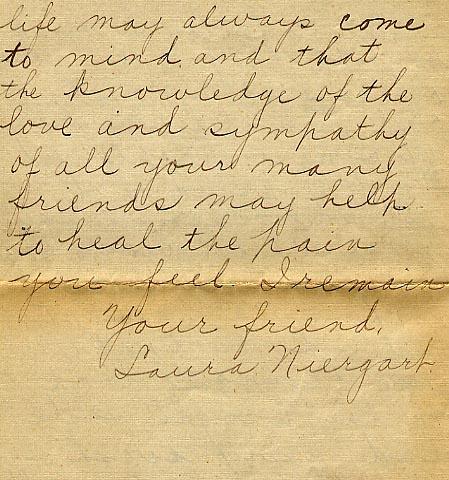 life may always come
to mind and that
the knowledge of the
love and sympathy
of all your many
friends may help
to heal the pain
you feel. I remain
Your friend,
Laura Niergarth